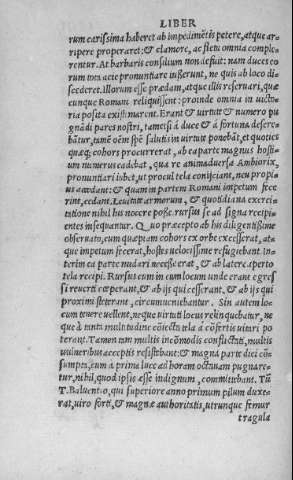 LIBER
rum carissima haberet ab impedimētis petere, atque ar-
ripere properaret: & clamore, ac fletu omnia comple-
rentur. At barbaris consilium non defuit: nam duces eo
rum tota acie pronuntiare iusserunt, ne quis ab loco di-
scederet. Illorum esse prædam, atque illis reseruari, quæ
cunque Romani reliquissent: proinde omnia in uicto-
ria posita existimarent. Erant & uirtute & numero pu
gnādi pares nostri, tametsi à duce & à fortuna desere-
bātur, tamē oēm spē salutis in uirtute ponebāt, et quoties
quæq; cohors procurrerat, ab ea parte magnus hosti-
um numerus cadebat, qua re animaduersa Ambiorix,
pronuntiari iubet, ut procul tela conijciant, neu propi-
us accedant: & quam in partem Romani impetum fece
rint, cedant. Leuitate armorum, & quotidiana exerci-
tatione nihil his nocere posse. rursus se ad signa recipi-
entes insequantur. Quo præcepto ab his diligentissime
obseruato, cum quæpiam cohors ex orbe excesserat, at-
que impetum fecerat, hostes uelocissime refugiebant. In-
terim ea parte nudari necesse erat, & ab latere aperto
tela recipi. Rursus cum in eum locum unde erant egres
si reuerti cœperant, & ab ijs qui cesserant, & ab ijs qui
proximi steterant, circumueniebantur. Sin autem lo-
cum tenere uellent, neque uirtuti locus relinquebatur, ne
que à tanta multitudine coiecta tela à cōfertis uitari po
terant. Tamen tum multis incōmodis conflictati, multis
uulneribus acceptis resistebant: & magna parte diei cō-
sumpta, cum a prima luce ad horam octauam pugnare-
tur, nihil, quod ipsis esse indignum, committebant. Tū
T. Baluentio, qui superiore anno primum pilum duxe-
rat, uiro forti, & magnæ authoritatis, utrunque femur
tragula